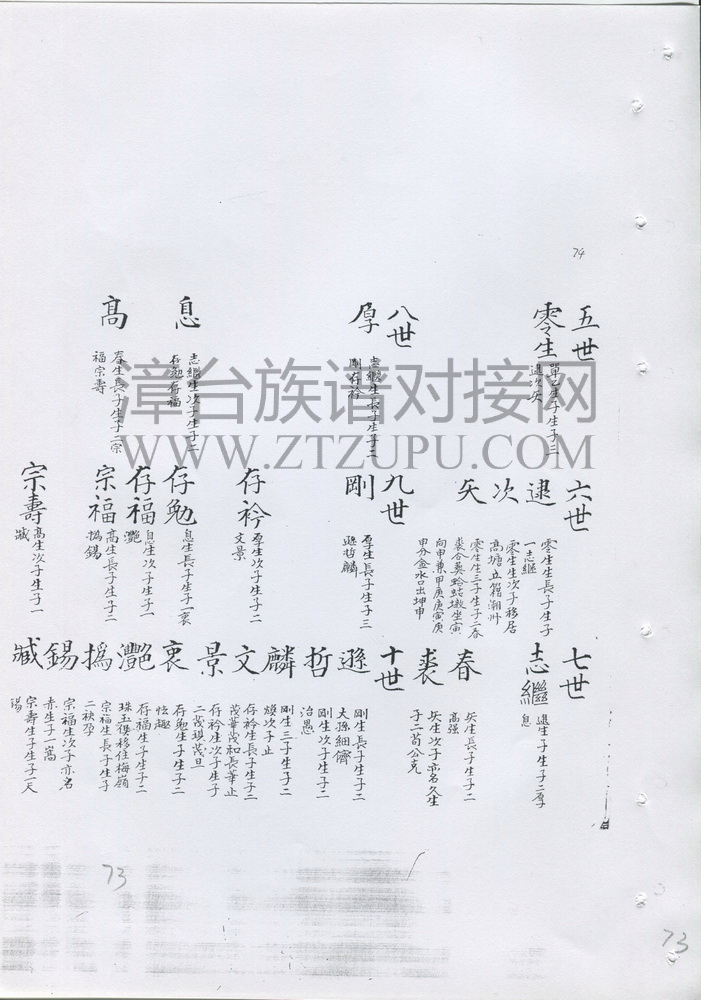 74
五世
零生
單二生子生子三
逮次矢
八世
厚
志繼生長子生子二
剛存衿
息
志繼生次子生子二
存勉存福
高
春生長子生子二宗
福宗壽
六世
逮
零生生長子生子
一志繼
次
零生生次子移居
高塘立籍潮州
矢
零生生三子生子二春
裘合葬蛤蛄墩坐寅
向申兼甲庚庚寅庚
申分金水口出坤申
九世
剛
厚生長子生子三
遜哲麟
存衿
厚生次子生子二
文景
存勉
息生長子生子一衷
存福
息生次子生子一
灔
宗福
高生長子生子二
撝錫
宗壽
高生次子生子一
臧
七世
志繼
逮生子生子二厚
息
春
矢生長子生子二
高强
裘
矢生次子亦名久生
子二苟公克
十世
遜
剛生長子生子二
大孫細儕
哲
剛生次子生子二
治愚
麟
剛生三子生子二
頍次子止
文
存衿生長子生子二
茂華茂和長華止
景
存衿生次子生子
二茂琪茂旦
衷
存勉生子生子二
怯趣
灔
存福生子生子二
珠玉俱移住梅嶺
撝
宗福生長子生子
二秧孕
錫
宗福生次子亦名
赤生子一嵩
臧
宗壽生子生子一天
錫
73
73
漳台族谱对接网
WWW.ZTZUPU.COM